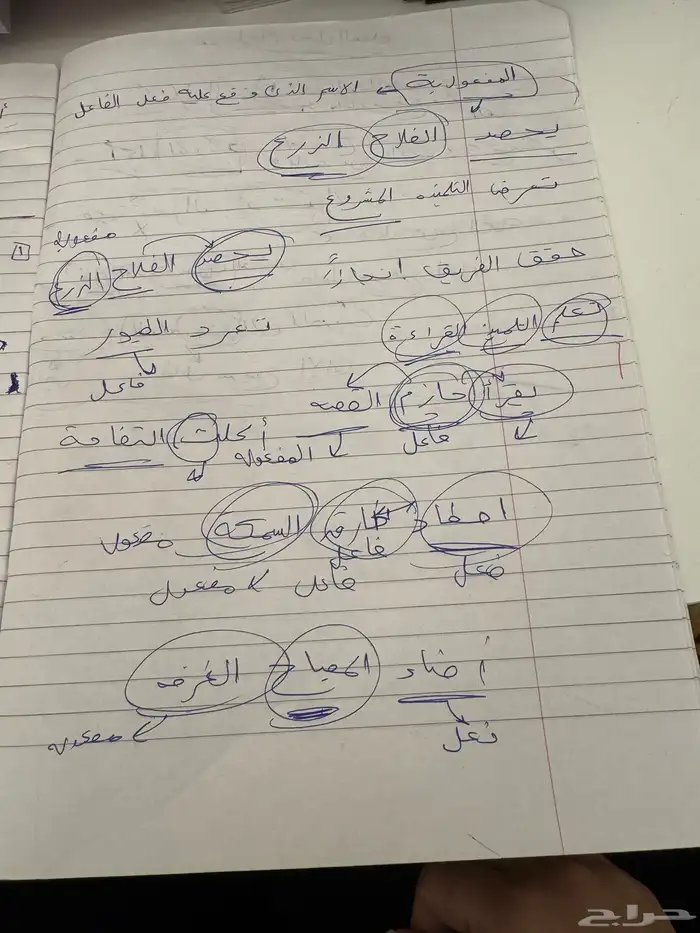 المفعول به ← الاسم الذي وقع عليه فعل الفاعل
يحصد الفلاح الزرع
تعرض التلميذه المشروع
حقق الفريق انجازاً
يحصد الفلاح الزرع مفعول به
تعلم التلميذ القراءة
تغرد الطيور
فاعل
يقرأ حازم القصه
فاعل المفعول به
أكلت التفاحة
اصطاد طارق السمكة مفعول
فعل فاعل فاعل مفعول
أضاء المصباح الغرفه
فعل مفعول به
حراج